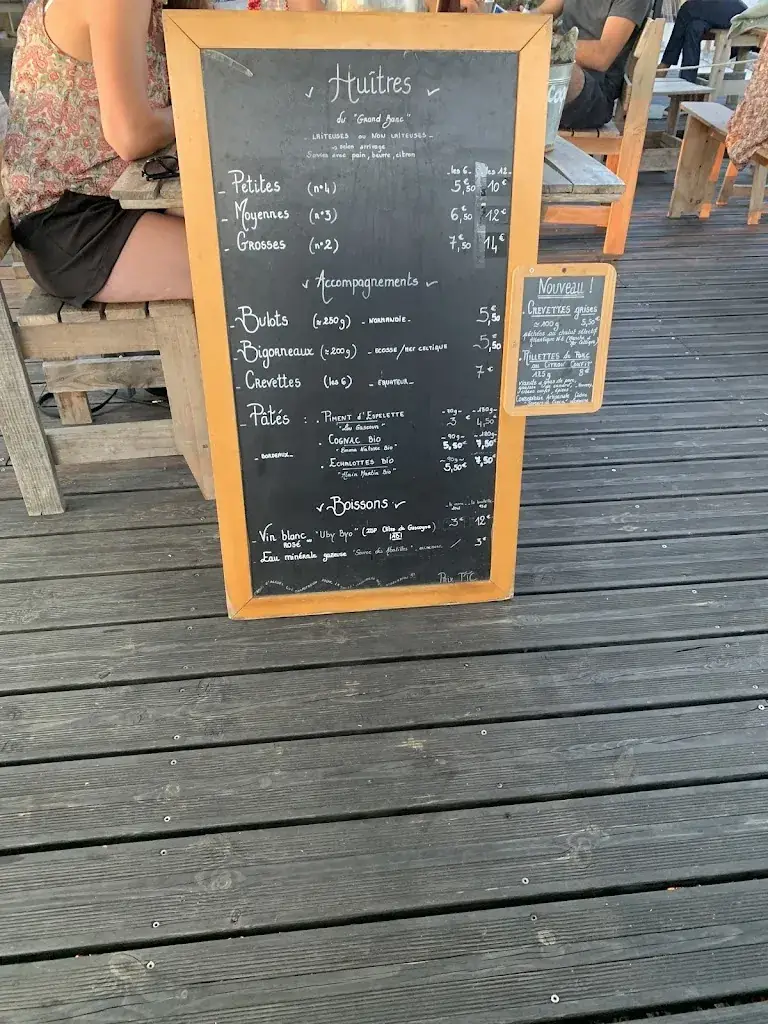 Huîtres
du "Grand Banc"
- LAITEUSES ou NON LAITEUSES -
selon arrivage
Servies avec pain, beurre, citron
- les 6 - - les 12 -
- Petites (n°4) 5,50€ 10€
- Moyennes (n°3) 6,50€ 12€
- Grosses (n°2) 7,50€ 14€
Accompagnements
- Bulots (≈250g) - NORMANDIE - 5,50€
- Bigorneaux (≈200g) - ECOSSE / MER CELTIQUE 5,50€
- Crevettes (les 6) - EQUATEUR - 7€
- 90g - - 180g -
- Pâtés : . PIMENT D'ESPELETTE 3€ 4,50€
"Lou Gascoun"
- 90g - - 180g -
. COGNAC BIO 5,50€ 7,50€
- BORDEAUX - "Emma Nature Bio"
- 90g -
. ECHALOTTES BIO 5,50€ 7,50€
"Alain Martin Bio"
Boissons
- Vin blanc "Uby Byo" (IGP Côtes de Gascogne) 3€ 12€
ROSÉ
Eau minérale gazeuse "Source des Abatilles" / 3€
Prix TTC
Nouveau !
. CREVETTES grises
≈100g 5,50€
pêchées au chalut sélectif
. RILLETTES de PORC
au CITRON CONFIT
125g 8€